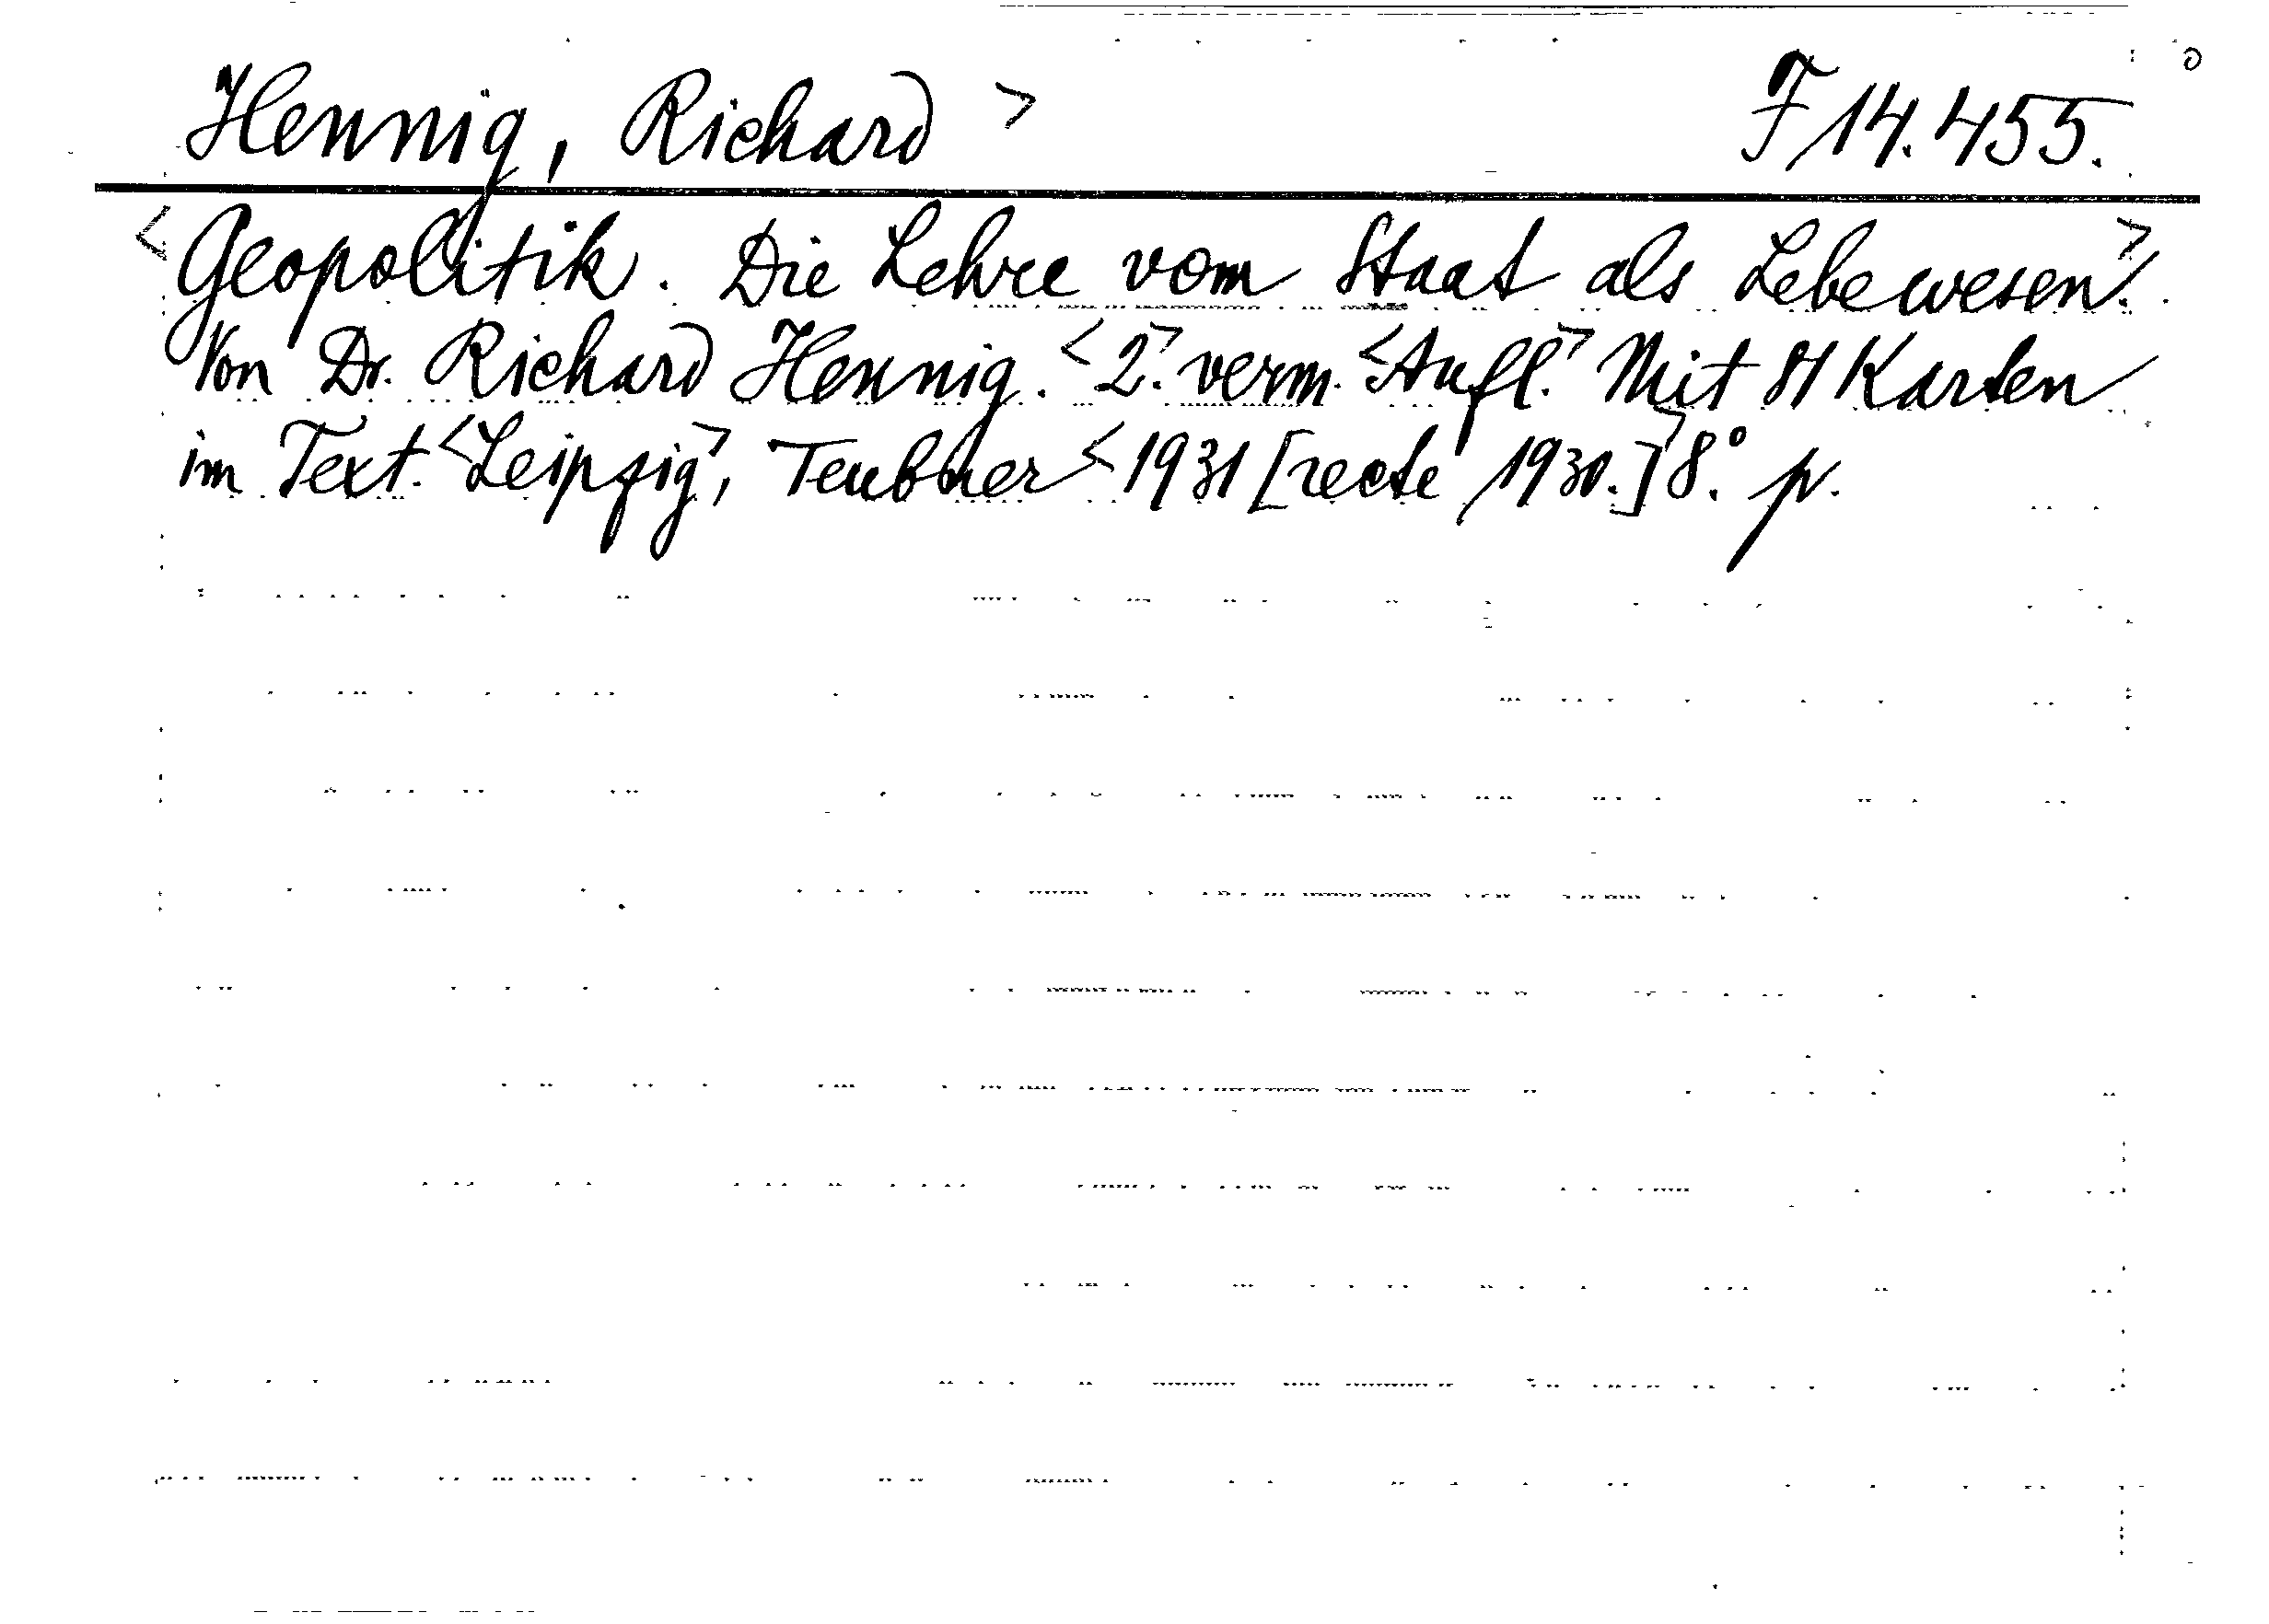 Hennig, Richard > F 14.455.
<Geopolitik. Die Lehre vom Staat als Lebewesen.>
Von Dr. Richard Hennig. <2.> verm. <Aufl.> Mit 81 Karten
im Text. <Leipzig>, Teubner <1931 [recte 1930.]> 8.° p.